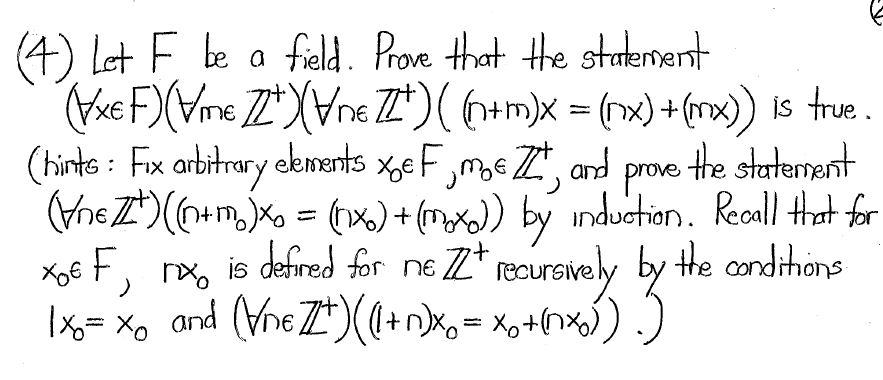 (4) Let F be a field. Prove that the statement
(∀x∈F)(∀m∈ℤ⁺)(∀n∈ℤ⁺)((n+m)x = (nx)+(mx)) is true.
(hints: Fix arbitrary elements x₀∈F, m₀∈ℤ⁺, and prove the statement
(∀n∈ℤ⁺)((n+m₀)x₀ = (nx₀)+(m₀x₀)) by induction. Recall that for
x₀∈F, nx₀ is defined for n∈ℤ⁺ recursively by the conditions
1x₀ = x₀ and (∀n∈ℤ⁺)((1+n)x₀ = x₀+(nx₀)).)